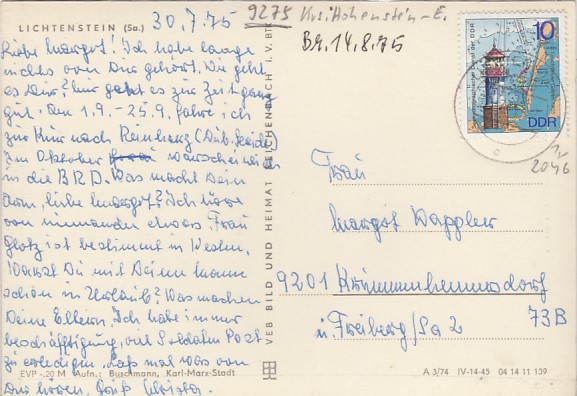 LICHTENSTEIN (Sa.) 30.7.75
9275 Krs. Hohenstein-E.
Br. 14.8.75
Liebe Margot! Ich habe lange
nichts von Dir gehört. Wie geht
es Dir? Mir geht es zur Zeit ganz
gut. Vom 1.9.-25.9. fahre ich
zur Kur nach Reinharz (Düb. Heide)
Im Oktober wir
in die BRD. Was macht Dein
Arm, liebe Margot? Ich höre
von niemanden etwas. Frau
Glotz ist bestimmt im Westen.
Warst Du mit Deinem Manne
schon in Urlaub? Was machen
Deine Eltern. Ich habe immer
beschäftigung, viel Soldaten Post
zu erledigen. Laß mal was von
Dir hören. Gruß Christa.
EVP -,20 M Aufn.: Buschmann, Karl-Marx-Stadt
VEB BILD UND HEIMAT REICHENBACH I. V. BTK
10
DDR
2046
Frau
Margot Dappler
9201 Krummenhennersdorf
ü. Freiberg/Sa 2 73B
A 3/74 IV-14-45 04 14 11 139